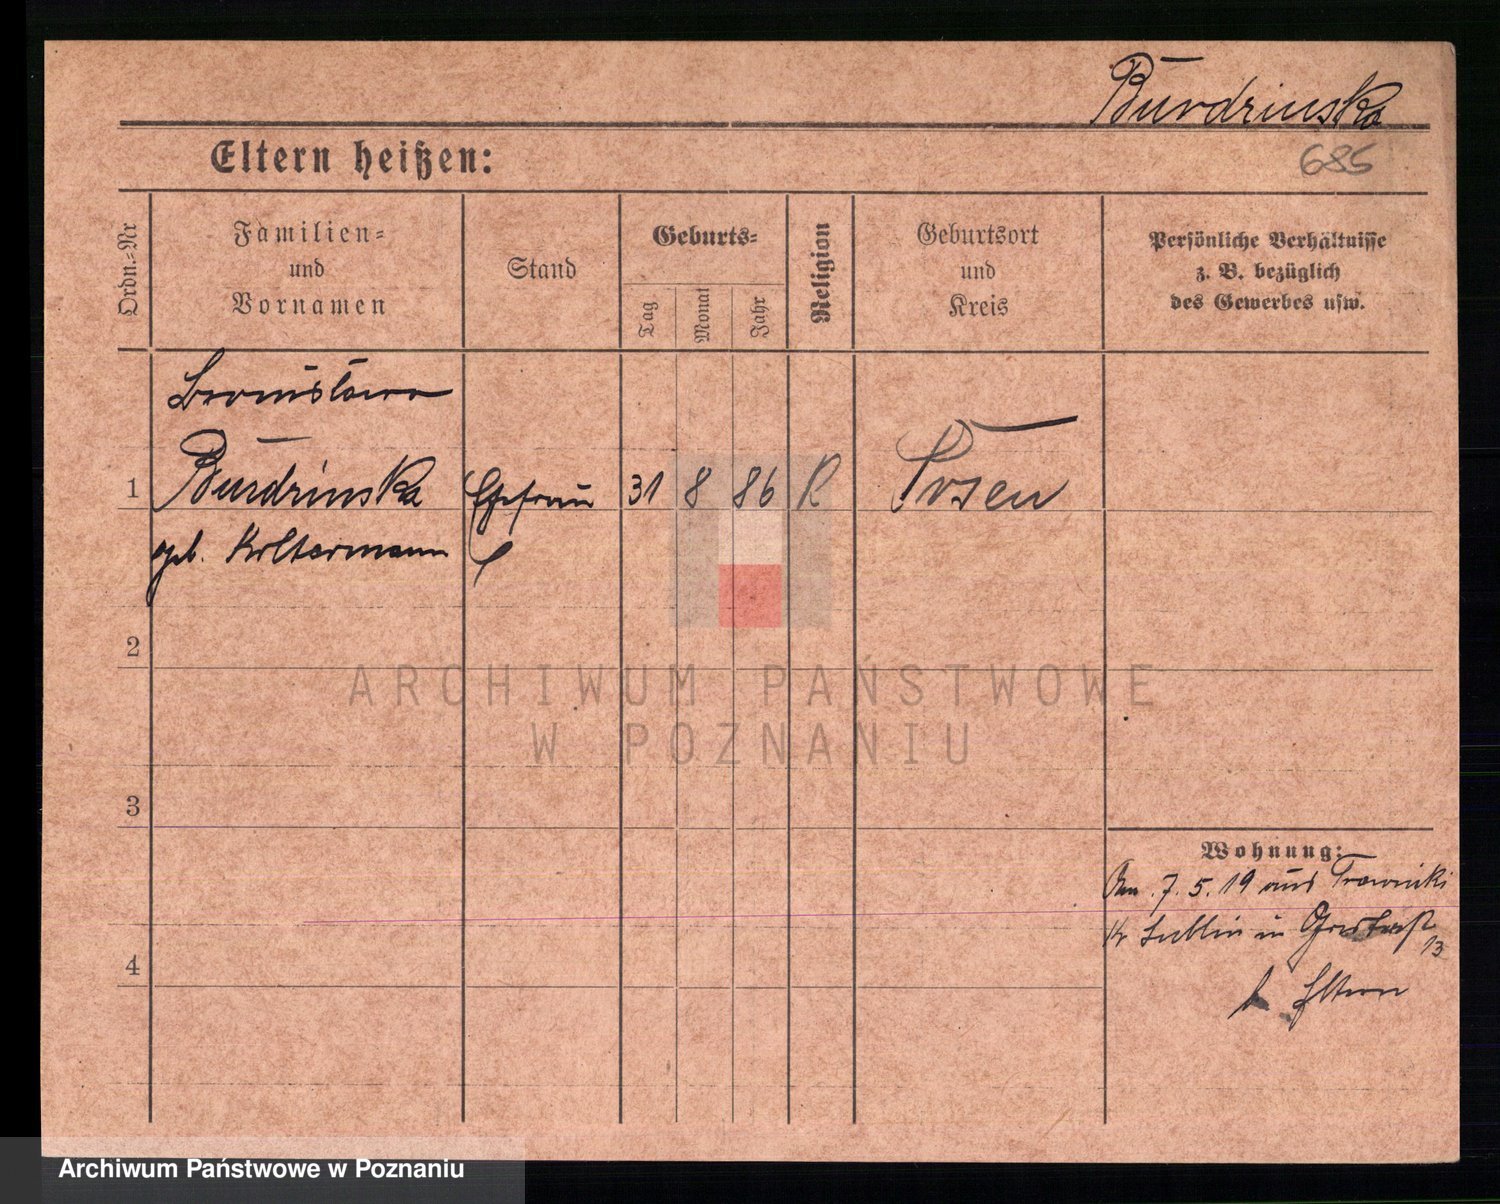 Burdzinska
685
Eltern heißen:
Ordn.-Nr
Familien-
und
Vornamen
Stand
Geburts-
Tag
Monat
Jahr
Religion
Geburtsort
und
Kreis
Persönliche Verhältnisse
z. B. bezüglich
des Gewerbes usw.
Bronisława
1 Burdzinska Ehefrau 31 8 86 K Posen
geb. Koltermann
2
ARCHIWUM PAŃSTWOWE
W POZNANIU
3
Wohnung:
Am 7.5.19 aus Trawniki
Kr Lublin in
13
4
b Eltern
Archiwum Państwowe w Poznaniu